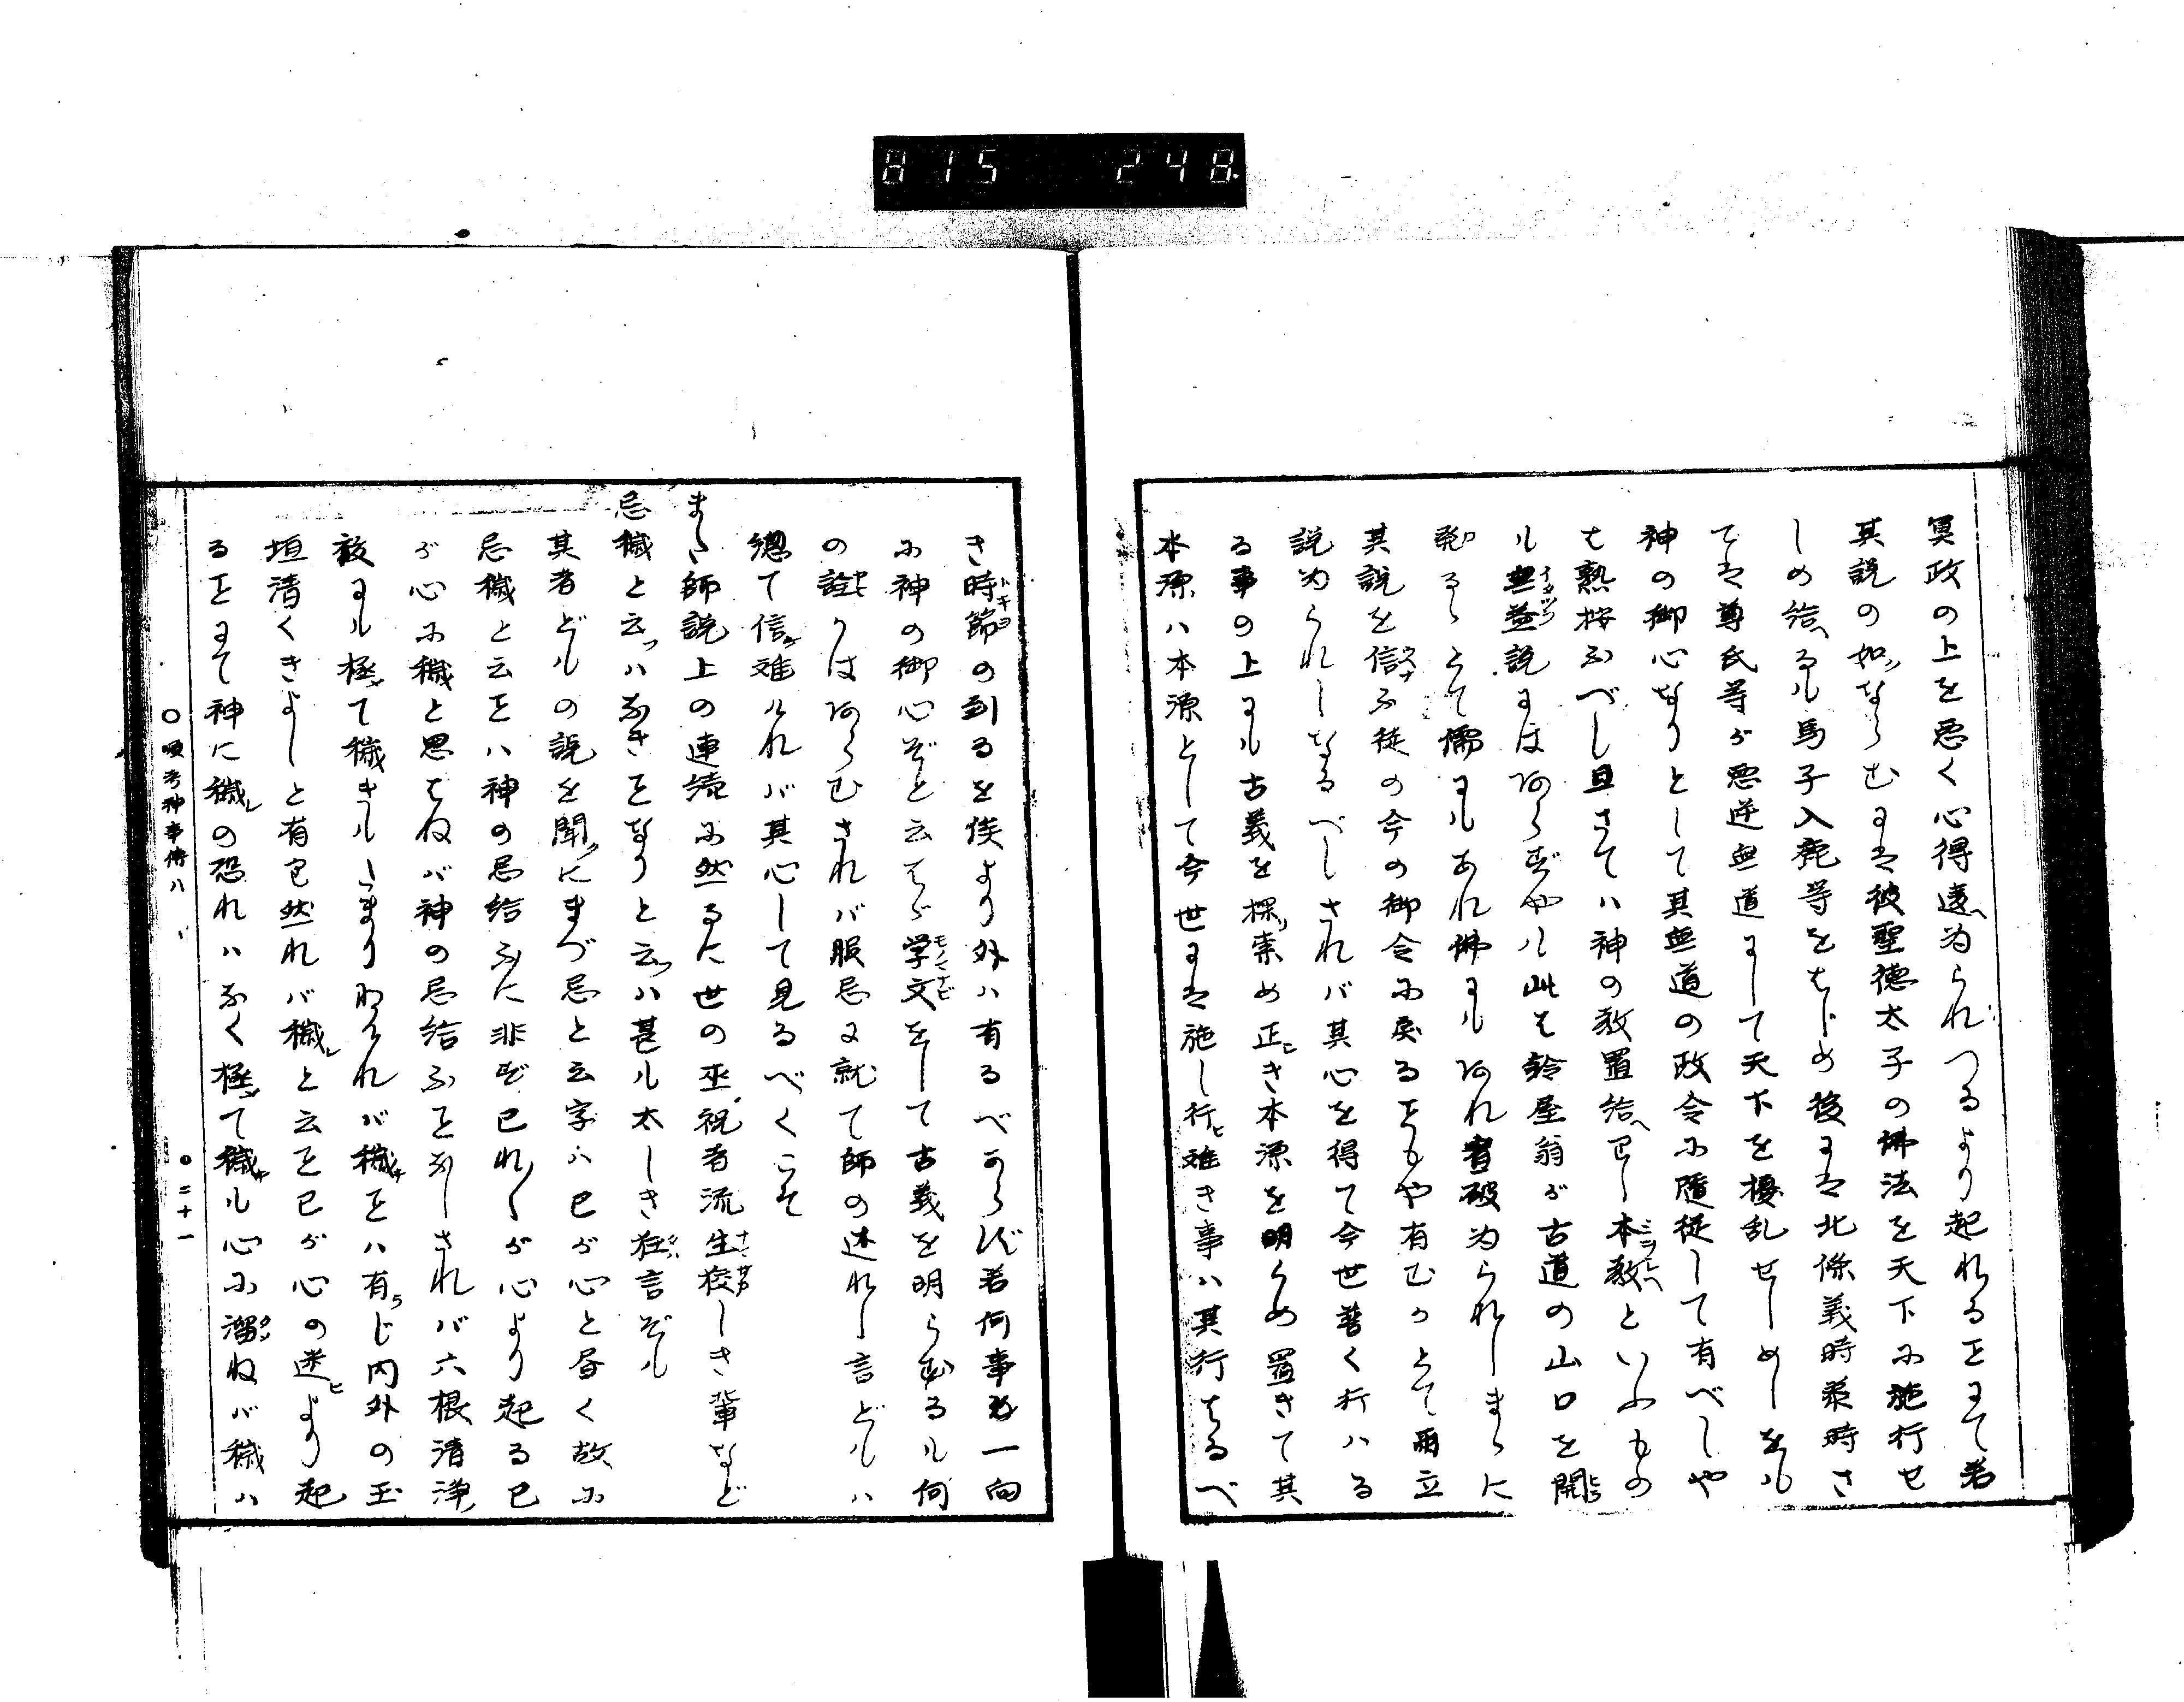 815 248
冥政の上を悪く心得違へ為られつるより起れるまて若
其説の如くならむまは彼聖徳太子の佛法を天下に施行せ
しめ給へるも馬子入鹿等をはじめ後まは北條義時泰時さ
ては尊氏等が悪逆無道まして天下を擾乱せしめしをも
神の御心なりとして其無道の政令に隨従して有べしや
も熟按ふべし且さては神の教置給へりし本教といふもの
も無益説まはあらずやも此も鈴屋翁が古道の山口を開
るとて儒まもあれ佛まもあれ書破為られしまゝに
其説を信ふ徒の今の御令に戻るともや有むかとて両立
説為られしなるべしされバ其心を得て今世普く行ハる
る事の上まも古義を探り索め正しき本源を明らめ置きて其
本源ハ本源として今世まは施し行ひ難き事ハ其行はるべ
き時節の到るを俟より外ハ有るべからず若何事も一向
に神の御心ぞと云はゞ学文をして古義を明らむるも何
の詮かはあらむされバ服忌に就て師の述れし言どもハ
總て信難けれバ其心して見るべくこそ
また師説上の連續に然るに世の巫祝者流生狡しき輩など
忌穢と云ハなきことなりと云ハ甚も太しき狂言ぞも
其者どもの説を聞くにまづ忌と云字ハ己が心と昼く故に
忌穢と云ことハ神の忌給ふに非ず己れが心より起る己
が心に穢と思はねバ神の忌給ふことなしされバ六根清浄
祓まも極て穢きもたまりねけれバ穢きことハ有じ内外の玉
垣清くきよしと有り然れバ穢と云こと己が心の迷より起
ることまて神に穢の恐れハなく極て穢きも心に溜ねバ穢ハ
○順考神事傳八
○二十一